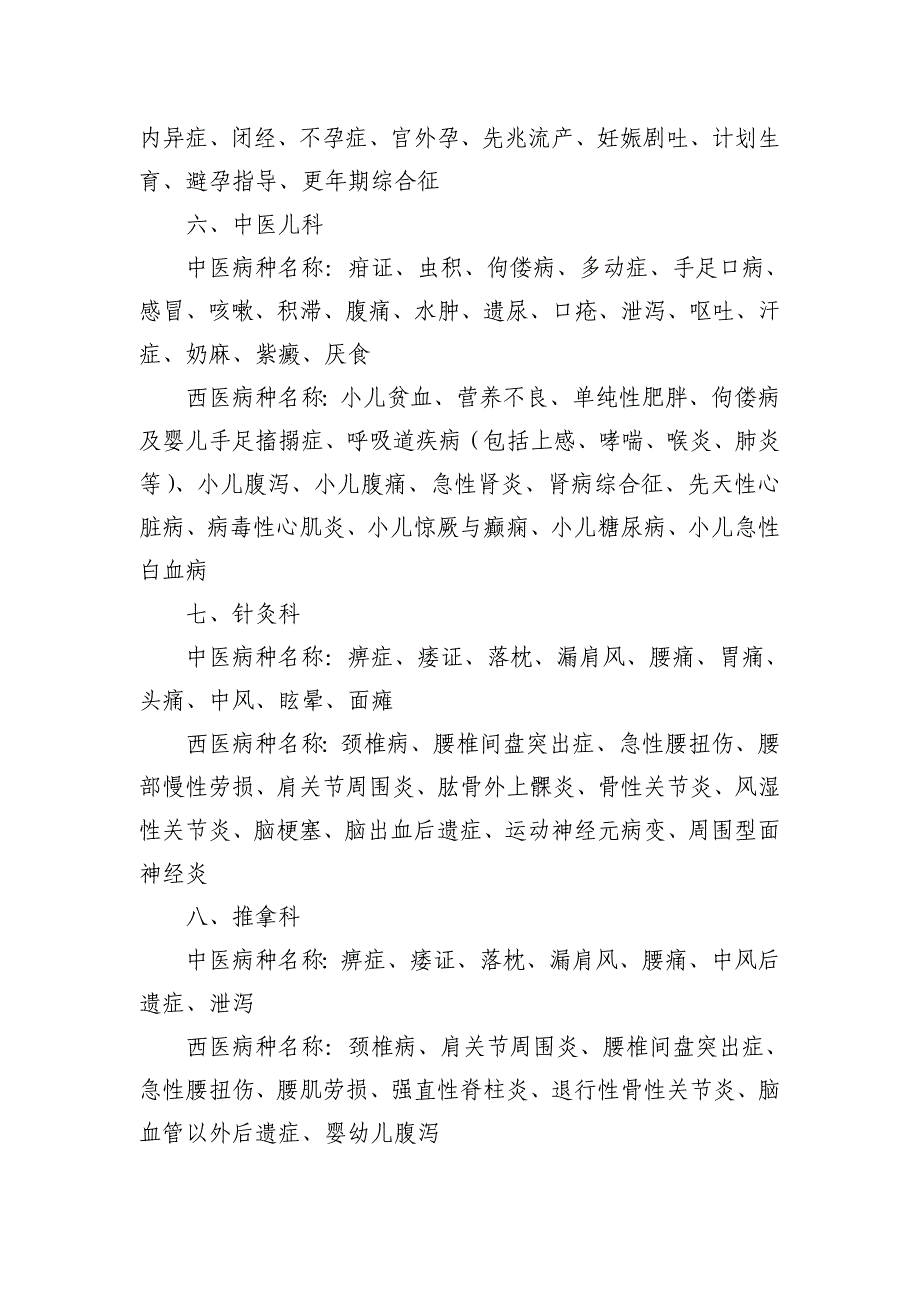 内异症、闭经、不孕症、宫外孕、先兆流产、妊娠剧吐、计划生
育、避孕指导、更年期综合征
六、中医儿科
中医病种名称：疳证、虫积、佝偻病、多动症、手足口病、
感冒、咳嗽、积滞、腹痛、水肿、遗尿、口疮、泄泻、呕吐、汗
症、奶麻、紫癜、厌食
西医病种名称：小儿贫血、营养不良、单纯性肥胖、佝偻病
及婴儿手足搐搦症、呼吸道疾病（包括上感、哮喘、喉炎、肺炎
等）、小儿腹泻、小儿腹痛、急性肾炎、肾病综合征、先天性心
脏病、病毒性心肌炎、小儿惊厥与癫痫、小儿糖尿病、小儿急性
白血病
七、针灸科
中医病种名称：痹症、痿证、落枕、漏肩风、腰痛、胃痛、
头痛、中风、眩晕、面瘫
西医病种名称：颈椎病、腰椎间盘突出症、急性腰扭伤、腰
部慢性劳损、肩关节周围炎、肱骨外上髁炎、骨性关节炎、风湿
性关节炎、脑梗塞、脑出血后遗症、运动神经元病变、周围型面
神经炎
八、推拿科
中医病种名称：痹症、痿证、落枕、漏肩风、腰痛、中风后
遗症、泄泻
西医病种名称：颈椎病、肩关节周围炎、腰椎间盘突出症、
急性腰扭伤、腰肌劳损、强直性脊柱炎、退行性骨性关节炎、脑
血管以外后遗症、婴幼儿腹泻